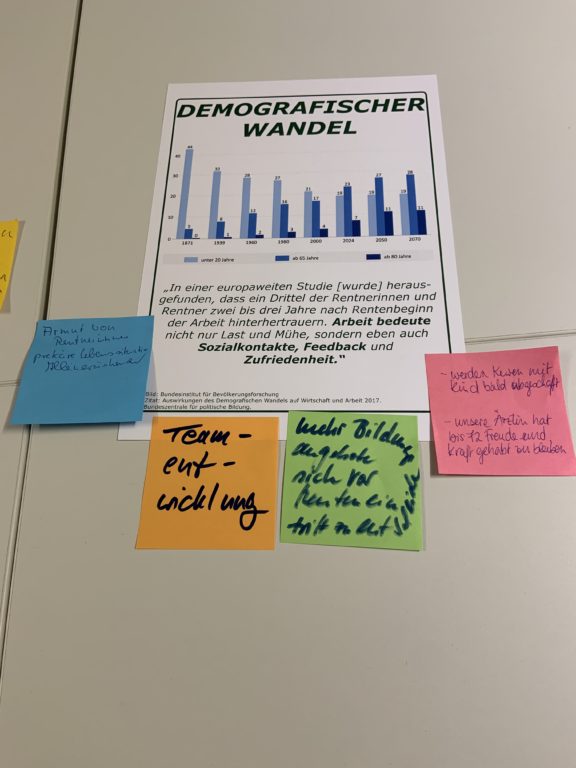 DEMOGRAFISCHER
WANDEL
40
30
20
10
0
44
5
0
32
8
1
28
12
2
27
16
3
21
17
4
19
23
7
19
27
11
19
28
11
1871
1939
1960
1980
2000
2024
2050
2070
unter 20 Jahre
ab 65 Jahre
ab 80 Jahre
„In einer europaweiten Studie [wurde] heraus-
gefunden, dass ein Drittel der Rentnerinnen und
Rentner zwei bis drei Jahre nach Rentenbeginn
der Arbeit hinterhertrauern. Arbeit bedeute
nicht nur Last und Mühe, sondern eben auch
Sozialkontakte, Feedback und
Zufriedenheit."
Bild: Bundesinstitut für Bevölkerungsforschung
Zitat: Auswirkungen des Demografischen Wandels auf Wirtschaft und Arbeit 2017.
Bundeszentrale für politische Bildung.
Armut von
Rentnerinnen
prekäre Lebenssituation
Alleinerziehend
Team-
ent-
wicklung
mehr Bildung
angebote
sich vor
Renten ein
tritt zu
- werden Kuren mit
Kind bald abgeschafft
- unsere Ärztin hat
bis 72 Freude und
kraft gehabt zu bleiben